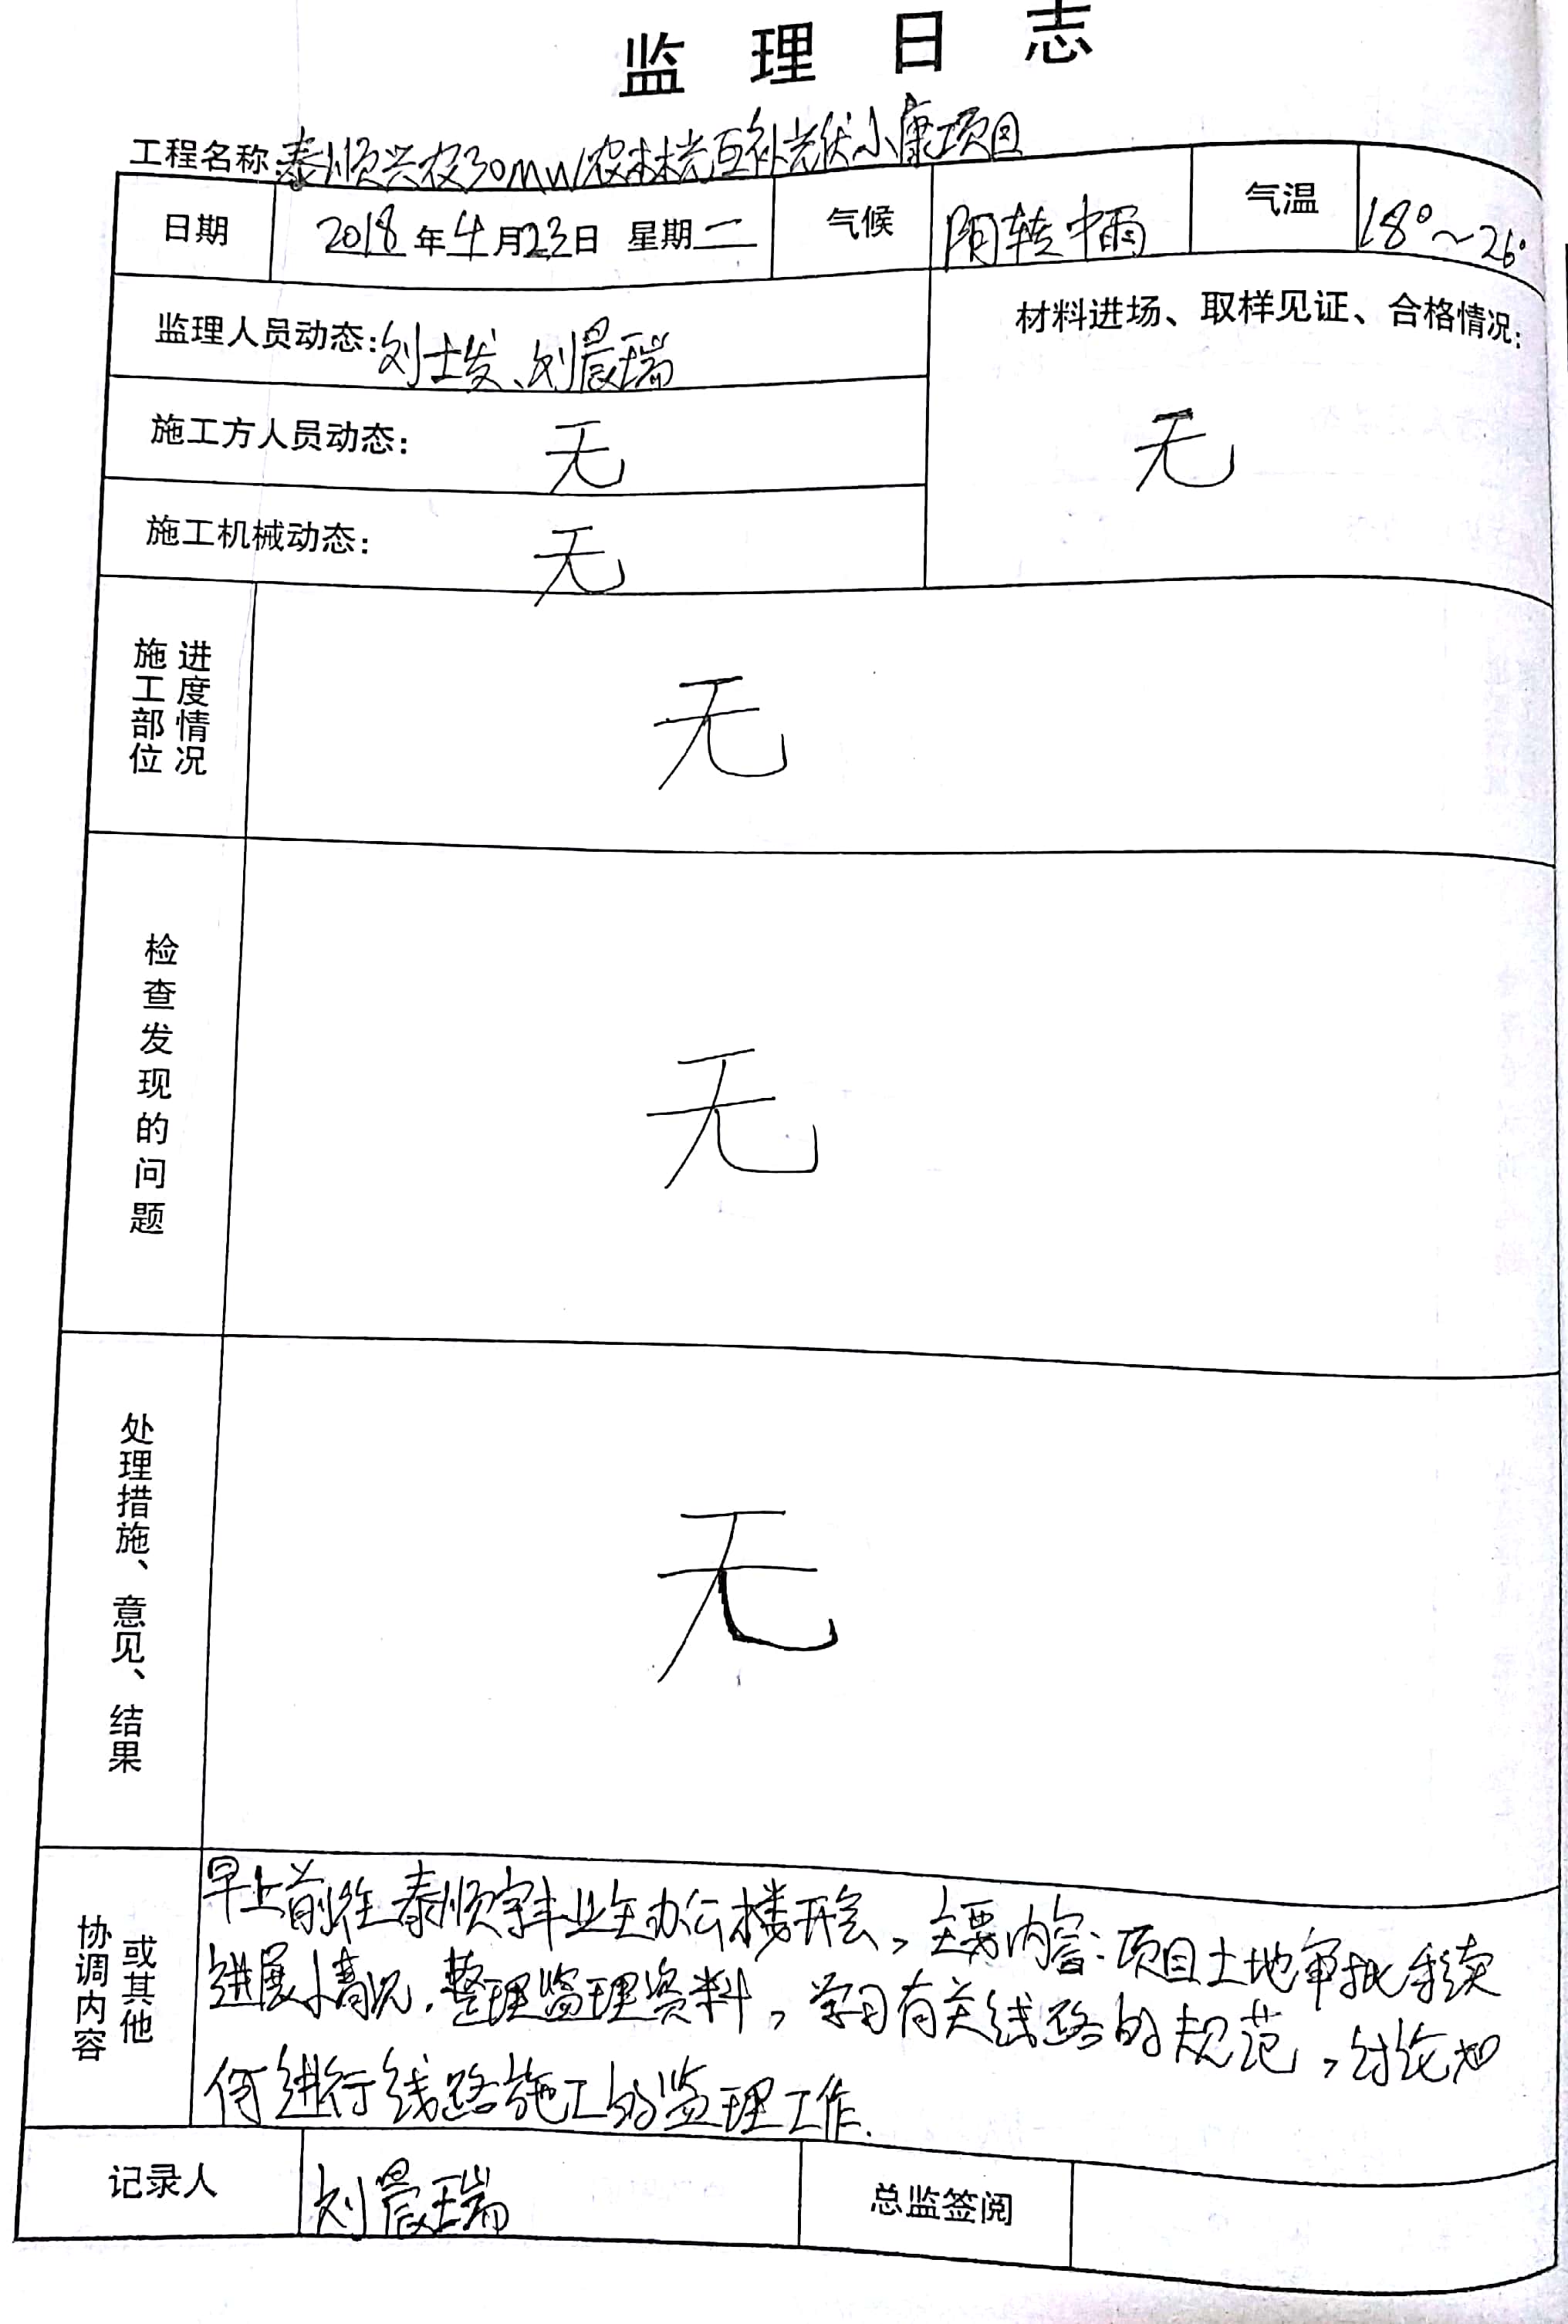 监理日志
工程名称:泰顺兴农30MW农林光互补光伏小康项目
日期 2018年4月23日 星期二 气候 阴转中雨 气温 18°~26°
监理人员动态:刘士发、刘晨瑞
材料进场、取样见证、合格情况:
无
施工方人员动态: 无
施工机械动态: 无
施工部位
进度情况
无
检查发现的问题
无
处理措施、意见、结果
无
协调内容
或其他
早上前往泰顺宇丰业主办公楼开会,主要内容:项目土地审批手续
进展情况.整理监理资料,学习有关线路的规范,讨论如
何进行线路施工的监理工作.
记录人 刘晨瑞 总监签阅